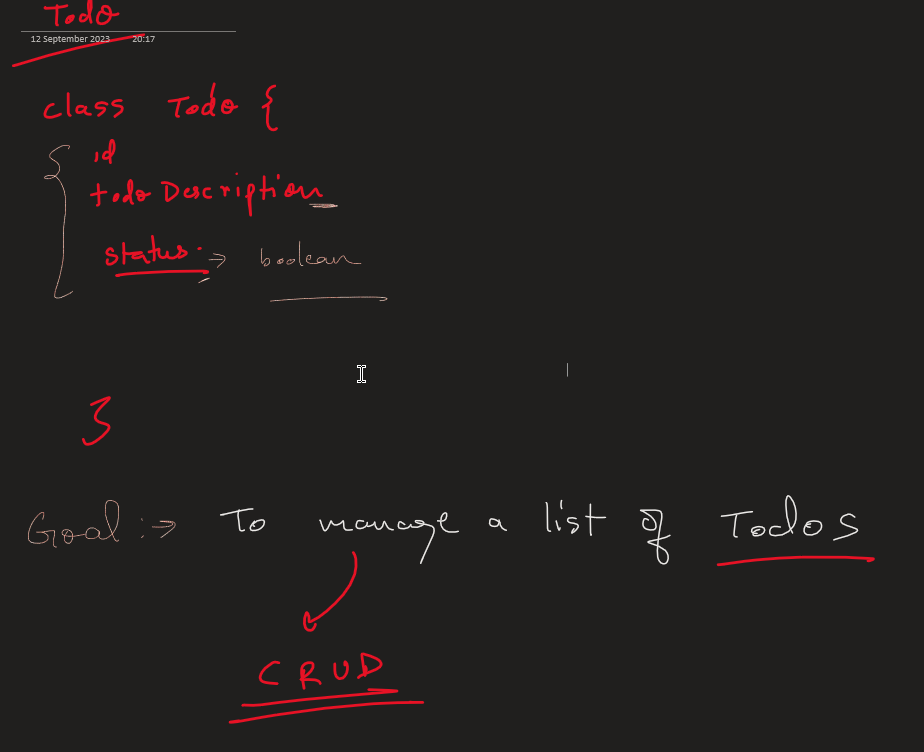 Todo
12 September 2023 20:17
class Todo {
id
todo Description
status → boolean
}
Goal :→ To manage a list of Todos
CRUD